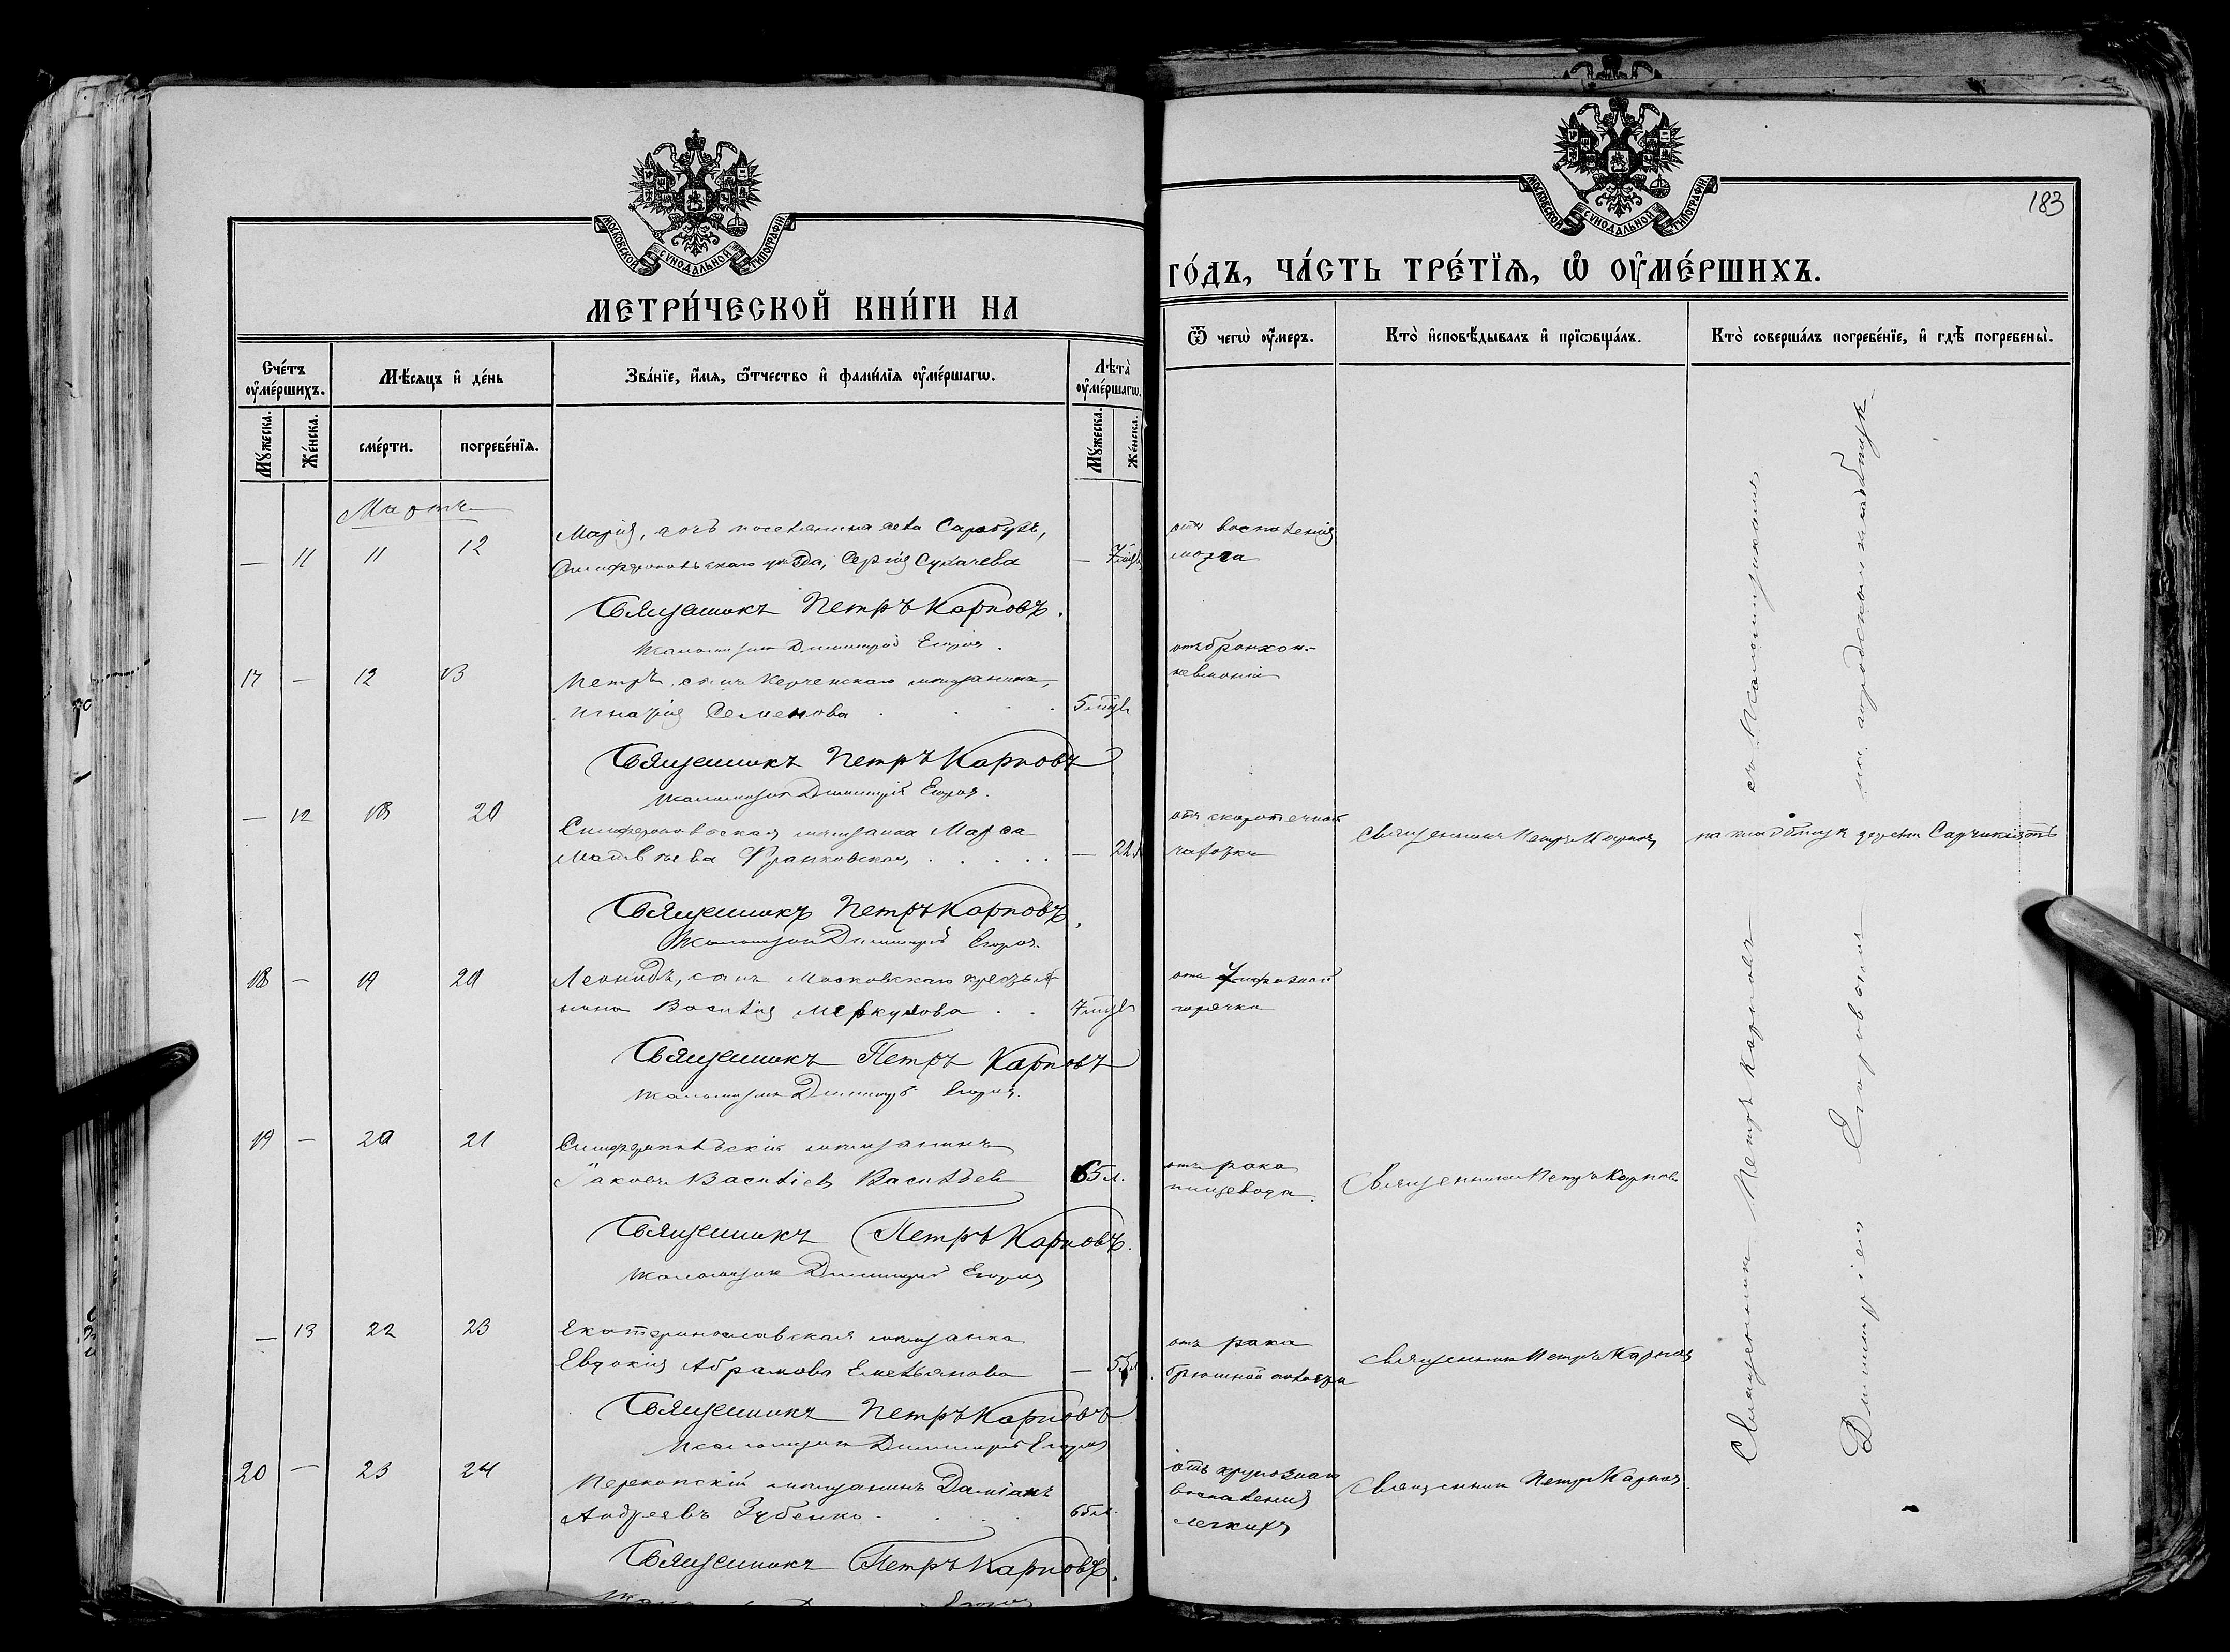 МОСКОВСКОЙ СУНОДАЛЬНОЙ ТИПОГРАФІИ
МЕТРИ́ЧЕСКОЙ КНИ́ГИ НА
Сче́тъ ᲂу҆ме́ршихъ.
Мѣ́сяцъ и҆ де́нь
Зва́нїе, и҆́мя, ѻ҆́тчество и҆ фами́лїя ᲂу҆ме́ршагѡ.
Лѣта̀ ᲂу҆ме́ршагѡ.
Мꙋ́жеска.
Же́нска.
сме́рти.
погребе́нїя.
Мꙋ́жеска.
Же́нска.
Мартъ
— 11 11 12 Марія, дочь поселянина села Сарабузъ,
Симферопольскаго уѣзда, Сергія Сукачева — 7 мѣс.
Священникъ Петръ Карповъ.
Псаломщикъ Димитрій Егоровъ.
17 — 12 13 Петръ, сынъ Керченскаго мѣщанина,
Игнатія Семенова 5 мѣс.
Священникъ Петръ Карповъ
Псаломщикъ Димитрій Егоровъ.
— 12 18 20 Симферопольская мѣщанка Марѳа
Матвѣева Франковская — 22 л.
Священникъ Петръ Карповъ.
Псаломщикъ Димитрій Егоровъ.
18 — 19 20 Леонидъ, сынъ Московскаго крестья-
нина Василія Меркулова 7 мѣс.
Священникъ Петръ Карповъ
Псаломщикъ Димитрій Егоровъ.
19 — 20 21 Симферопольскій мѣщанинъ
Іаковъ Василіевъ Васильевъ 65 л.
Священникъ Петръ Карповъ.
Псаломщикъ Димитрій Егоровъ
— 13 22 23 Екатеринославская мѣщанка
Евдокія Абрамова Емельянова — 55 л.
Священникъ Петръ Карповъ
Псаломщикъ Димитрій Егоровъ
20 — 23 24 Перекопскій мѣщанинъ Даміанъ
Андреевъ Зубенко 65 л.
Священникъ Петръ Карповъ.
МОСКОВСКОЙ СУНОДАЛЬНОЙ ТИПОГРАФІИ
183
ГО́ДЪ, ЧА́СТЬ ТРЕ́ТЇЯ, Ѽ ОУ҆МЕ́РШИХЪ.
Ѿ чегѡ̀ ᲂу҆́меръ.
Кто̀ и҆сповѣ́дывалъ и҆ прїѡбща́лъ.
Кто̀ соверша́лъ погребе́нїе, и҆ гдѣ̀ погребены̀.
отъ воспаленія
мозга
отъ бронхоп-
невмоніи
отъ скоротечной
чахотки
Священникъ Петръ Карповъ
на кладбищѣ деревни Сарчикіятъ
отъ тифозной
горячки
отъ рака
пищевода.
Священникъ Петръ Карповъ
отъ рака
брюшной полости
Священникъ Петръ Карповъ
отъ крупознаго
воспаленія
легкихъ
Священникъ Петръ Карповъ.
Священникъ Петръ Карповъ съ Псаломщикомъ
Димитріемъ Егоровымъ на городскомъ кладбищѣ.